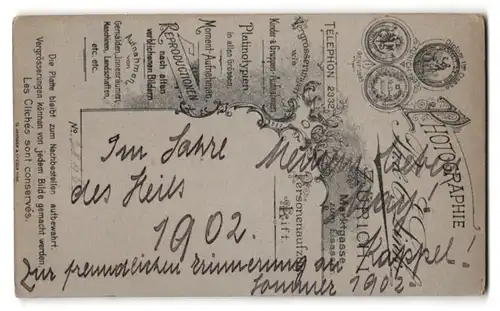 Im Jahre
des Heils
1902.
Meinem lieben
Zur freundlichen Erinnerung an Kappel,
Sommer 1902
PHOTOGRAPHIE
ZÜRICH
Marktgasse
zum Elsässer
Personenaufzug
Lift.
TELEPHON 2332
Vergrösserungen
wie
Kinder- & Gruppen-Aufnahmen
Platinotypien
in allen Grössen.
Moment-Aufnahmen.
REPRODUCTIONEN
nach alten
verblichenen Bildern
Aufnahmen
von
Gemälden, Innenräumen,
Maschinen, Landschaften,
etc. etc.
No.
Die Platte bleibt zum Nachbestellen aufbewahrt.
Vergrösserungen können von jedem Bilde gemacht werden.
Les Clichés sont conservés.